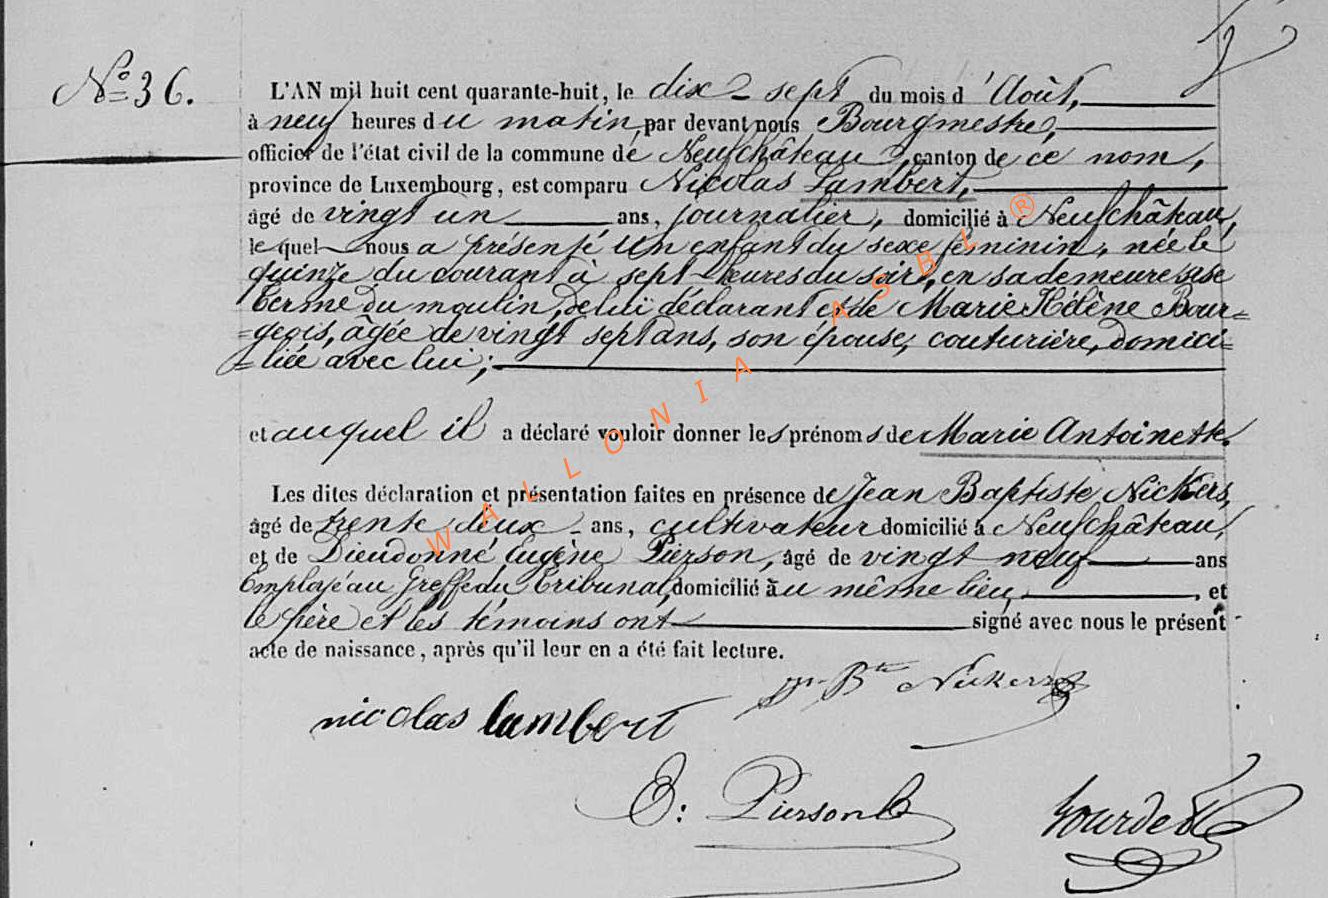 N° 36.
L'AN mil huit cent quarante-huit, le dix-sept du mois d'Août,
à neuf heures du matin, par devant nous Bourgmestre,
officier de l'état civil de la commune de Neufchâteau, canton de ce nom,
province de Luxembourg, est comparu Nicolas Lambert,
âgé de vingt un ans, journalier, domicilié à Neufchâteau,
lequel nous a présenté un enfant du sexe féminin, née le
quinze du courant à sept heures du soir, en sa demeure sise
terme du moulin, de lui déclarant et de Marie Hélène Bour=
=geois, âgée de vingt sept ans, son épouse, couturière, domici=
=liée avec lui;
et auquel il a déclaré vouloir donner les prénoms de Marie Antoinette.
Les dites déclaration et présentation faites en présence de Jean Baptiste Nickers,
âgé de trente deux ans, cultivateur domicilié à Neufchâteau,
et de Dieudonné Eugène Pierson, âgé de vingt neuf ans
Employé au Greffe du Tribunal, domicilié au même lieu, et
le père et les témoins ont signé avec nous le présent
acte de naissance, après qu'il leur en a été fait lecture.
Jn Bte Nickers
nicolas lambert
E: Pierson
WALLONIA ASBL ®